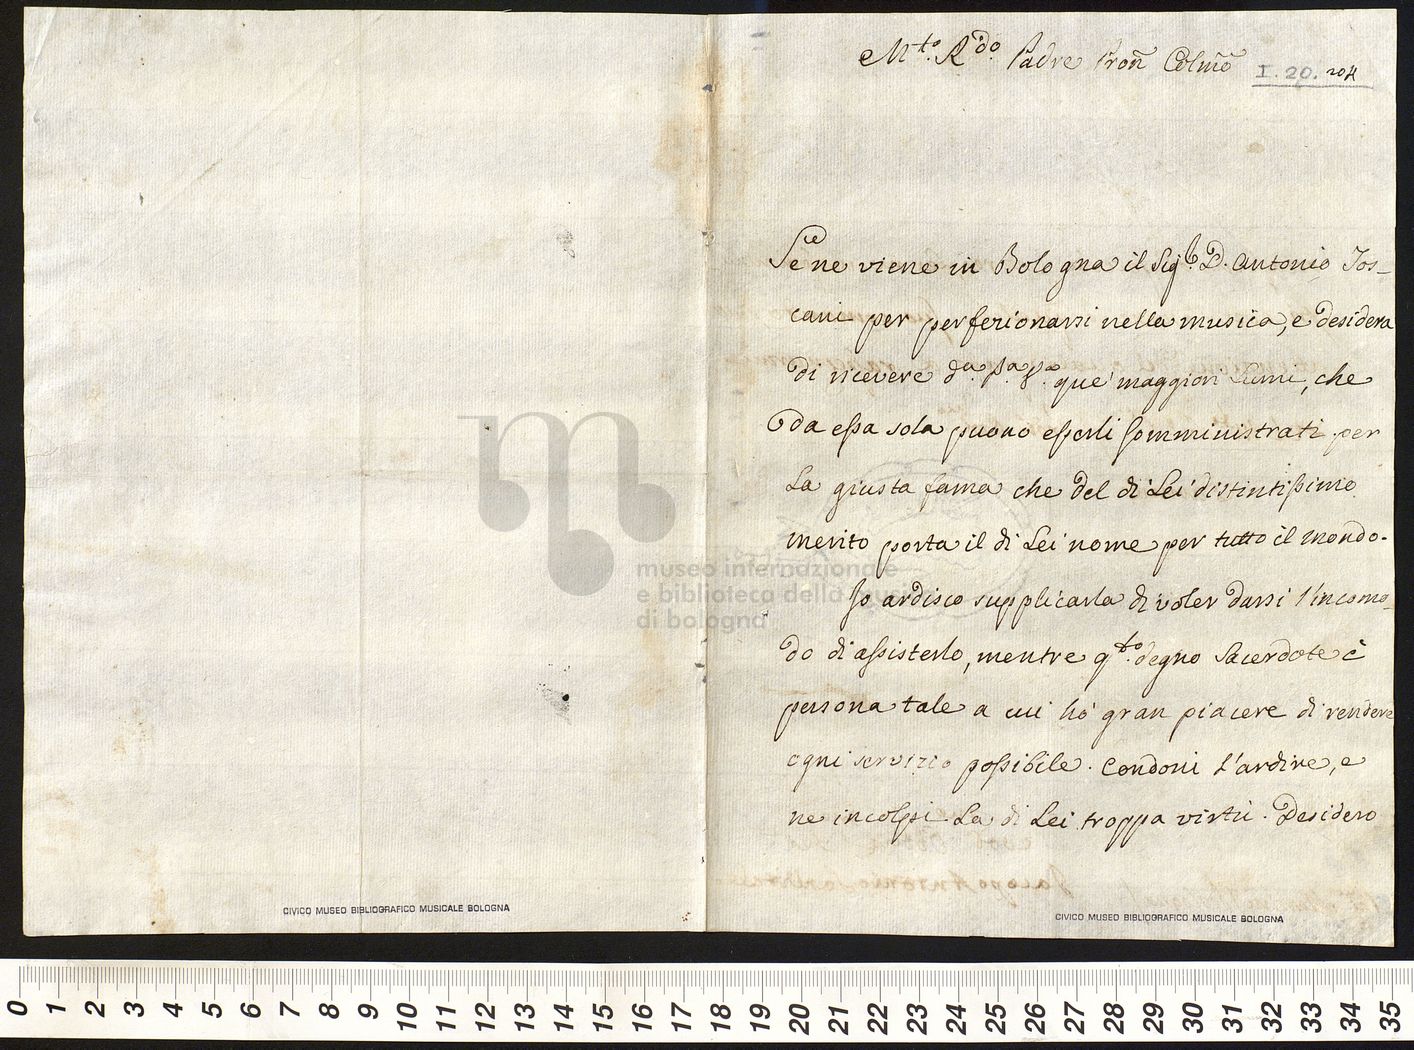 M.to R.do Padre Pron Colmo
I. 20. 204
Se ne viene in Bologna il Sig.r D. Antonio Tos-
cani per perfezionarsi nella musica, e desidera
di ricevere d.a P.a S.a que' maggiori Lumi, che
da essa sola puono esserli somministrati per
La giusta fama che del di Lei distintissimo
merito porta il di Lei nome per tutto il mondo.
Io ardisco supplicarla di voler darsi l'incomo-
do di assisterlo, mentre q.to degno Sacerdote è
persona tale a cui hò gran piacere di rendere
ogni servizio possibile. Condoni L'ardire, e
ne incolpi La di Lei troppa virtù. Desidero
museo internazionale
e biblioteca della musica
di bologna
CIVICO MUSEO BIBLIOGRAFICO MUSICALE BOLOGNA
CIVICO MUSEO BIBLIOGRAFICO MUSICALE BOLOGNA
0 1 2 3 4 5 6 7 8 9 10 11 12 13 14 15 16 17 18 19 20 21 22 23 24 25 26 27 28 29 30 31 32 33 34 35